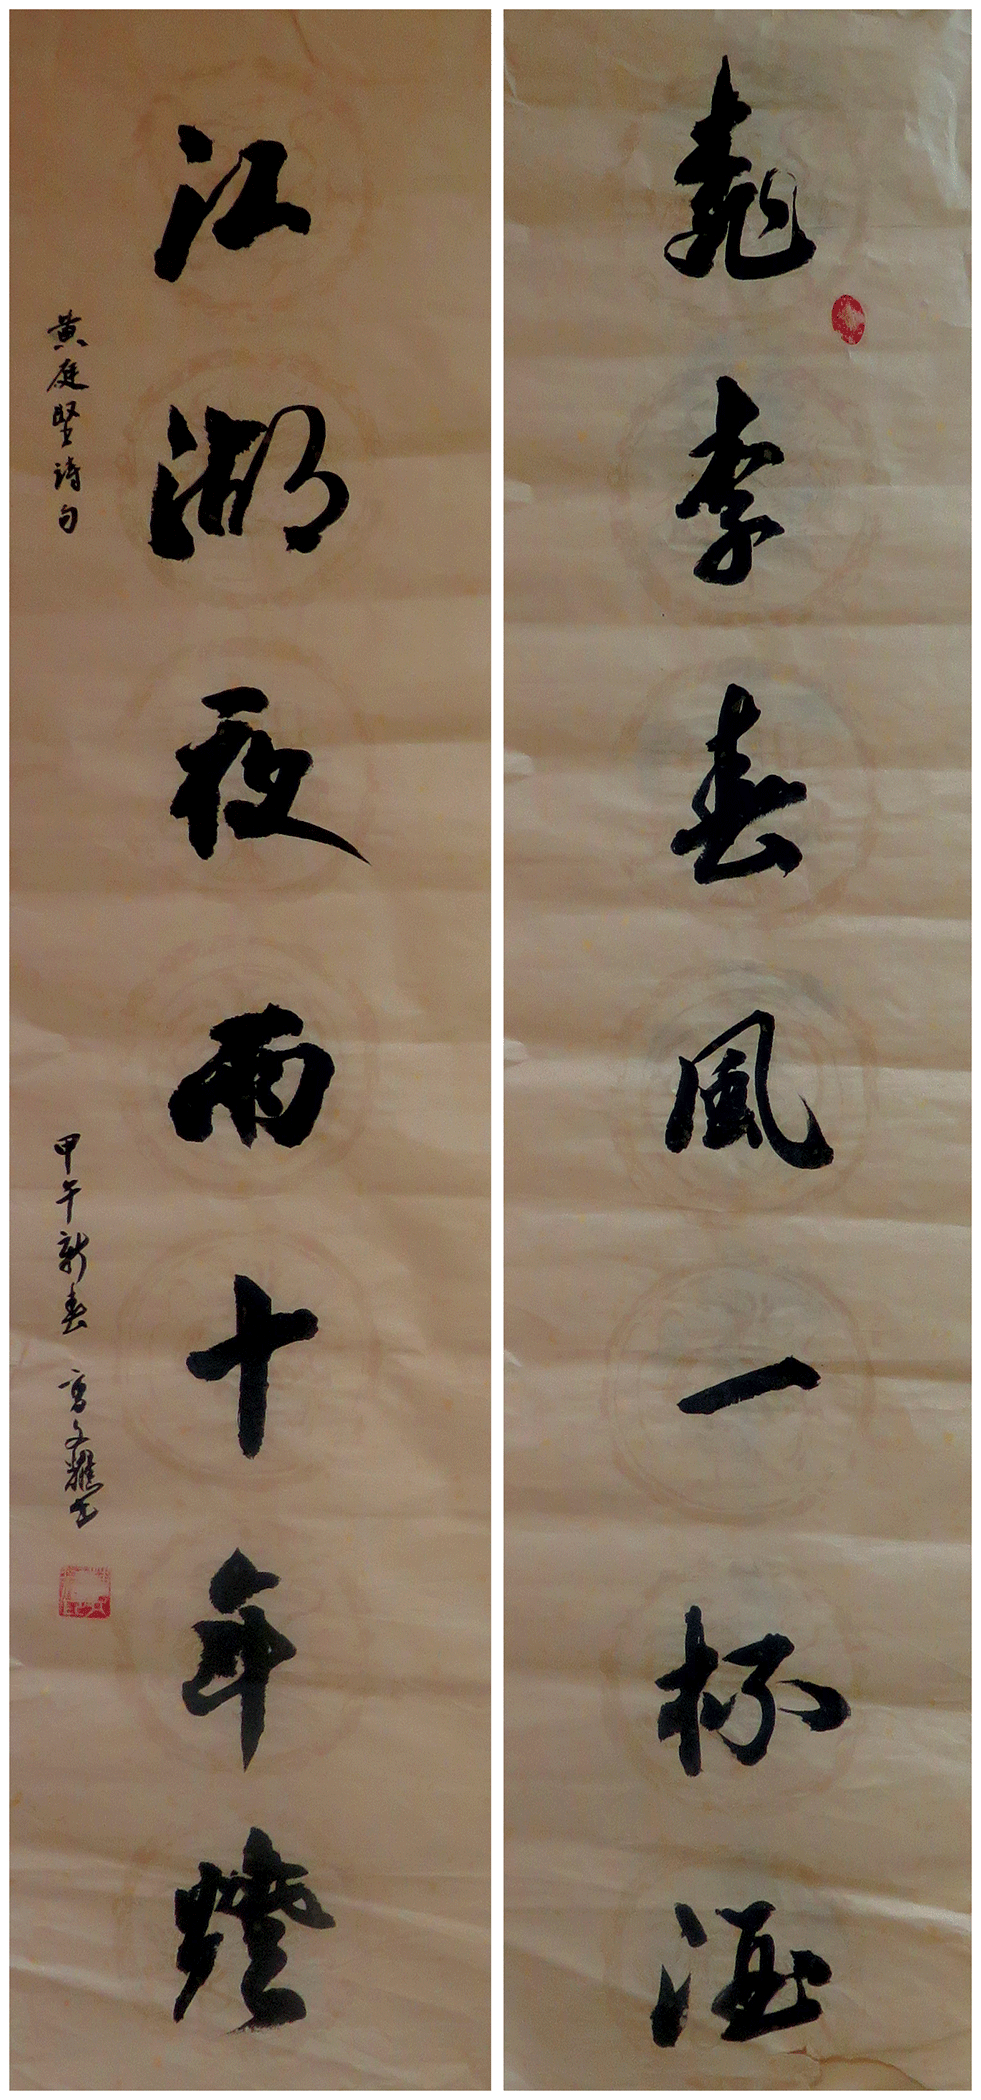 桃李春風一杯酒
江湖夜雨十年燈
黄庭堅詩句
甲午新春 文耀書